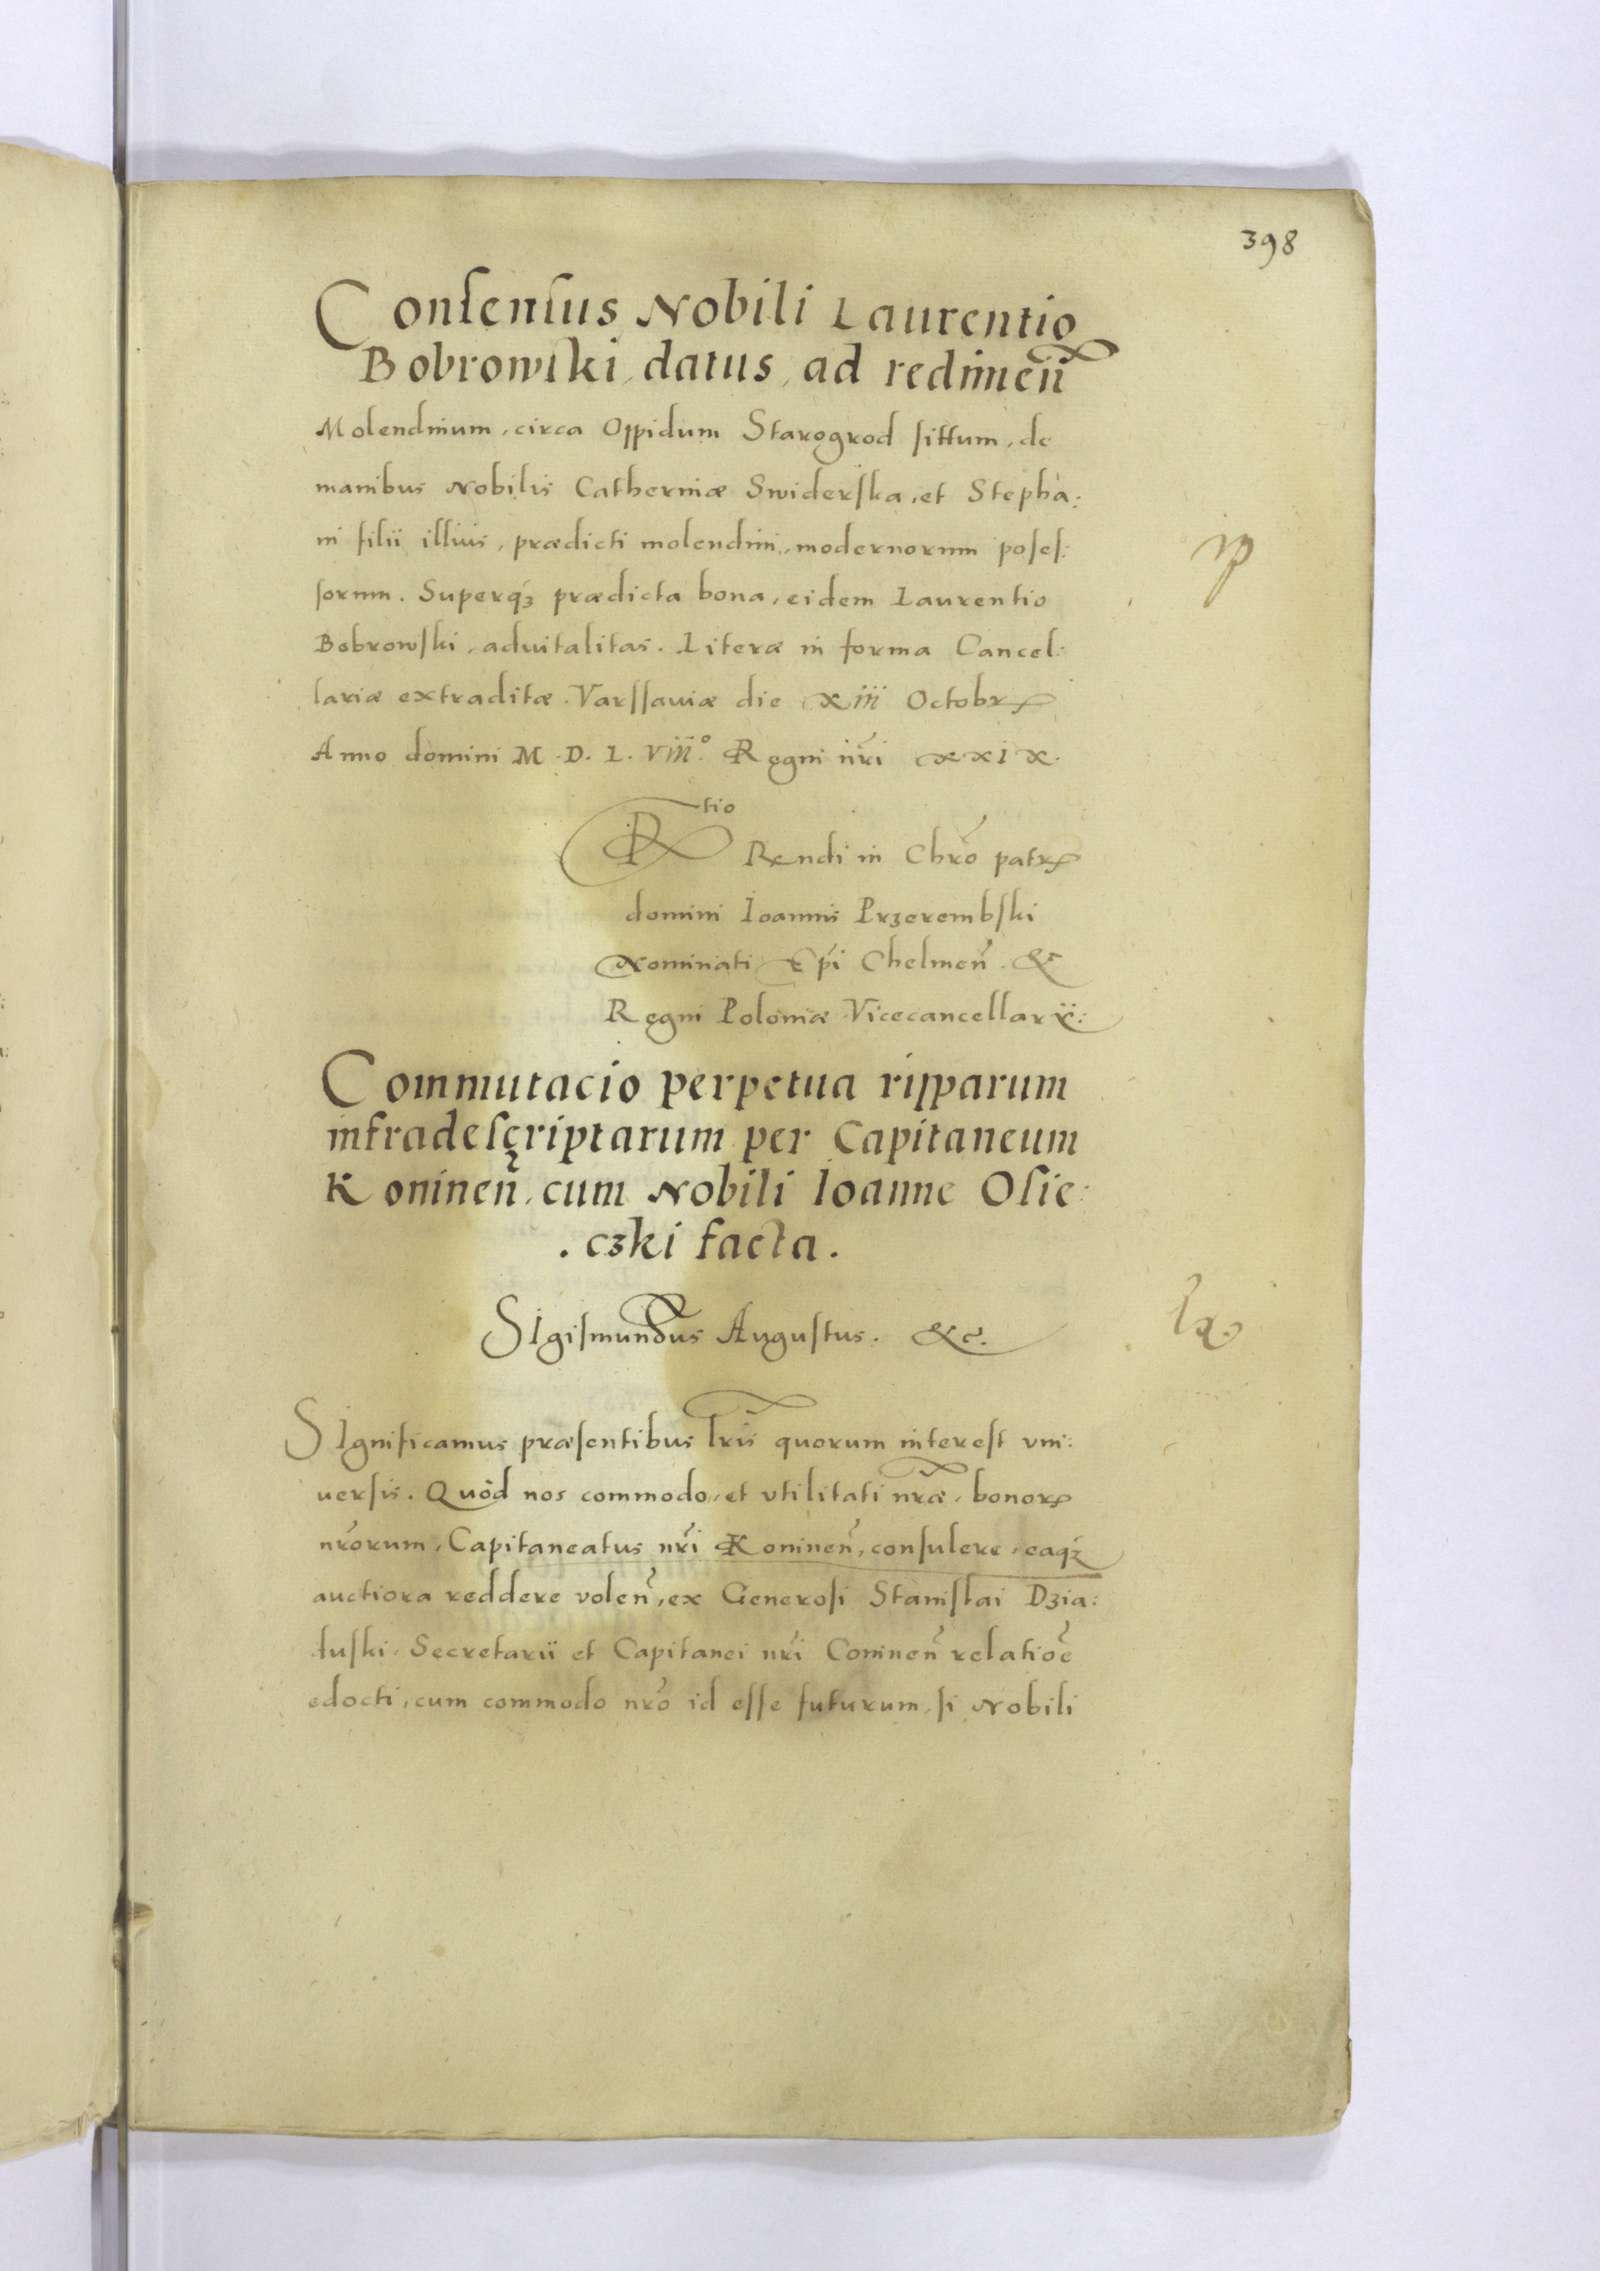 398
Consensus Nobili Laurentio
Bobrowski, datus, ad redimeñ
Molendinum, circa Oppidum Starogrod sittum, de
manibus Nobilis Catherinæ Swiderska, et Stepha:
ni filii illius, prædicti molendini, modernorum poses:
sorum. Superq́ȝ prædicta bona, eidem Laurentio
Bobrowski, aduitalitas. Literæ in forma Cancel:
lariæ extraditæ. Varssauiæ die xiii Octobrꝭ
Anno domini M.D.L.viii° Regni nr̃i xxix.
Rtio
Rendi in Chrõ patrꝭ
domini Ioannis Przerembski
Nominati Ep̃i Chelmeñ. &c
Regni Poloniæ Vicecancellarii:
Commutacio perpetua ripparum
infradescriptarum per Capitaneum
Konineñ, cum Nobili Ioanne Osie:
.czki facta.
Sigismundus Augustus. &c.
Significamus præsentibus lr̃is quorum interest vni:
uersis. Quòd nos commodo, et vtilitati nr̃æ, bonorꝝ
nr̃orum, Capitaneatus nr̃i Konineñ, consulere, eaq́ȝ
auctiora reddere voleñ, ex Generosi Stanislai Dzia:
łuski, Secretarii et Capitanei nr̃i Conineñ relatiõe
edocti, cum commodo nr̃o id esse futurum, si Nobili